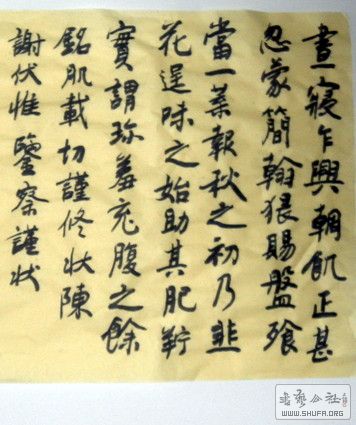 晝寢乍興輖飢正甚
忽蒙簡翰猥賜盤飧
當一葉報秋之初乃韭
花逞味之始助其肥羜
實謂珍羞充腹之餘
銘肌載切謹修状陳
謝伏惟鑒察謹状
書藝公社
WWW.SHUFA.ORG